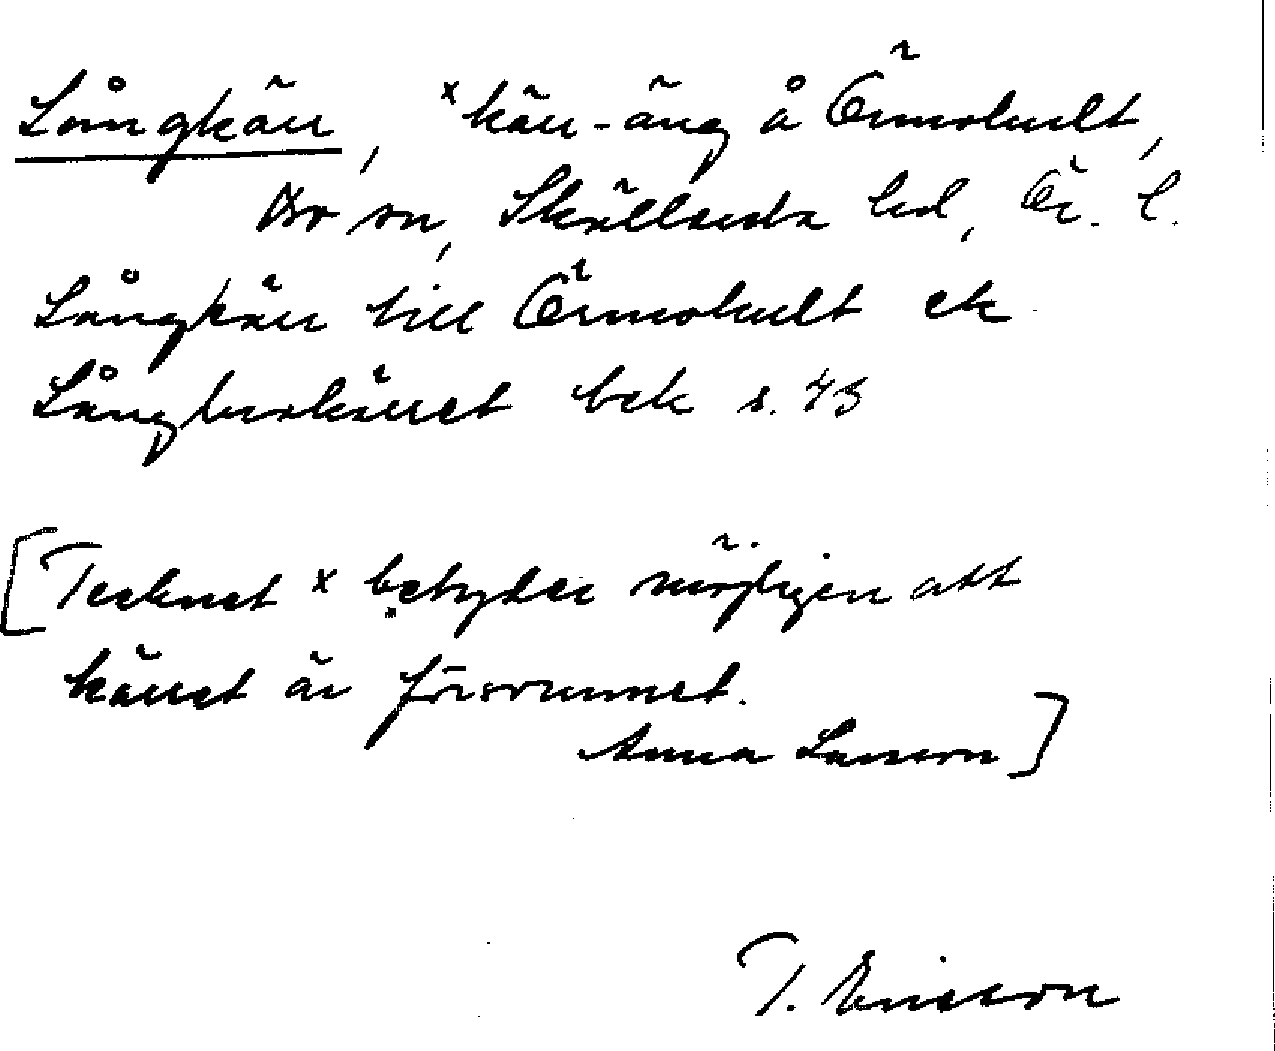 Långkärr, ˣkärr-äng å Örmohult,
Bo sn, Skyllersta hd, Ör. l.
Långkärr till Örmohult ek
Långhuskärret bek s. 43
[Tecknet x betyder möjligen att
kärret är försvunnet.
Anna Larsson]
T. Ericsson